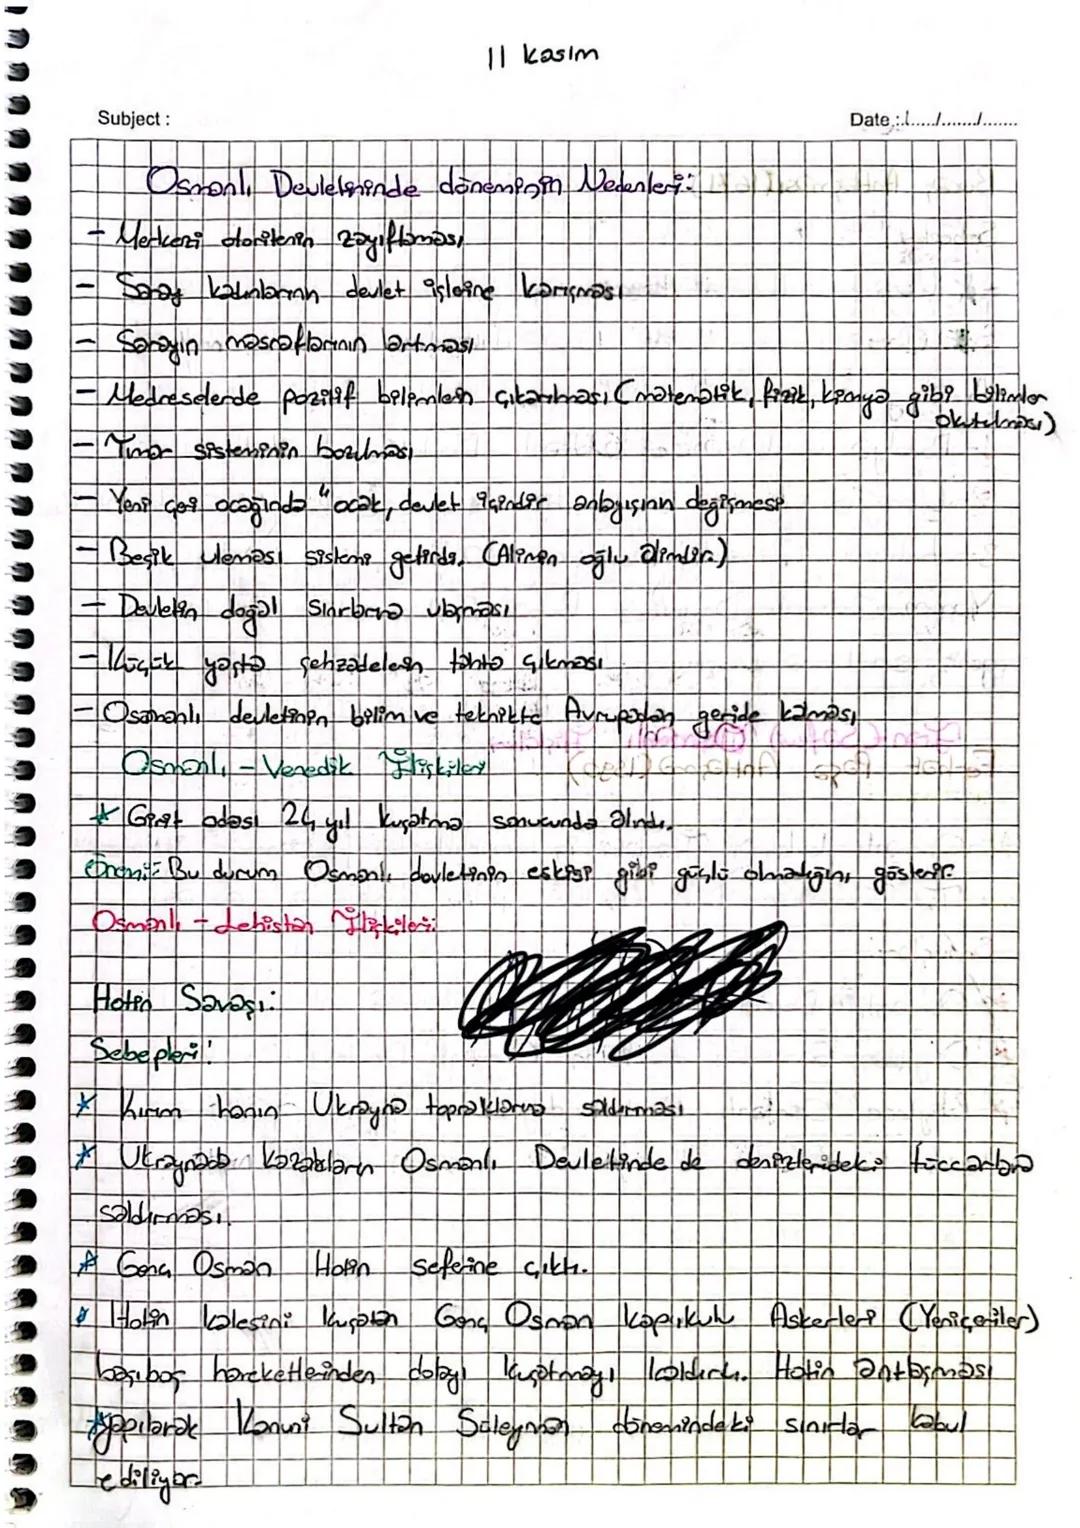 11 kasım
Subject :
Date :...../......./.......
Osmanlı Devletininde döneminin Nedenleri:
- Merkezi otoritenin zayıflaması
- Saray kadınlarının devlet işlerine karışması
- Sarayın masraflarının artması
- Medreselerde pozitif bilimlerin çıkarılması (matematik, fizik, kimya gibi bilimler
okutulması)
- Tımar sisteminin bozulması
- Yeni çeri ocağında "ocak, devlet içindir anlayışının değişmesi
- Beşik uleması sistemi getirdi. (Alimin oğlu alimdir.)
- Devletin doğal sınırlarına ulaşması
- Küçük yaşta şehzadelerin tahta çıkması
- Osmanlı devletinin bilim ve teknikte Avrupadan geride kalması
Osmanlı - Venedik İlişkileri
* Girit adası 24 yıl kuşatma sonucunda alındı.
Önemi: Bu durum Osmanlı devletinin eskisi gibi güçlü olmadığını gösterir.
Osmanlı - Lehistan İlişkileri:
Hotin Savaşı:
Sebepleri:
* Kırım hanın Ukrayna topraklarına saldırması
* Ukraynada kazakların Osmanlı Devletinde de denizlerideki tüccarlara
saldırması.
* Genç Osman Hotin seferine çıktı.
* Hotin kalesini kuşatan Genç Osman Kapıkulu Askerleri (Yeniçeriler)
başıboş hareketlerinden dolayı kuşatmayı kaldırdı. Hotin antlaşması
* yapılarak Kanuni Sultan Süleyman dönemindeki sınırlar kabul
ediliyor.